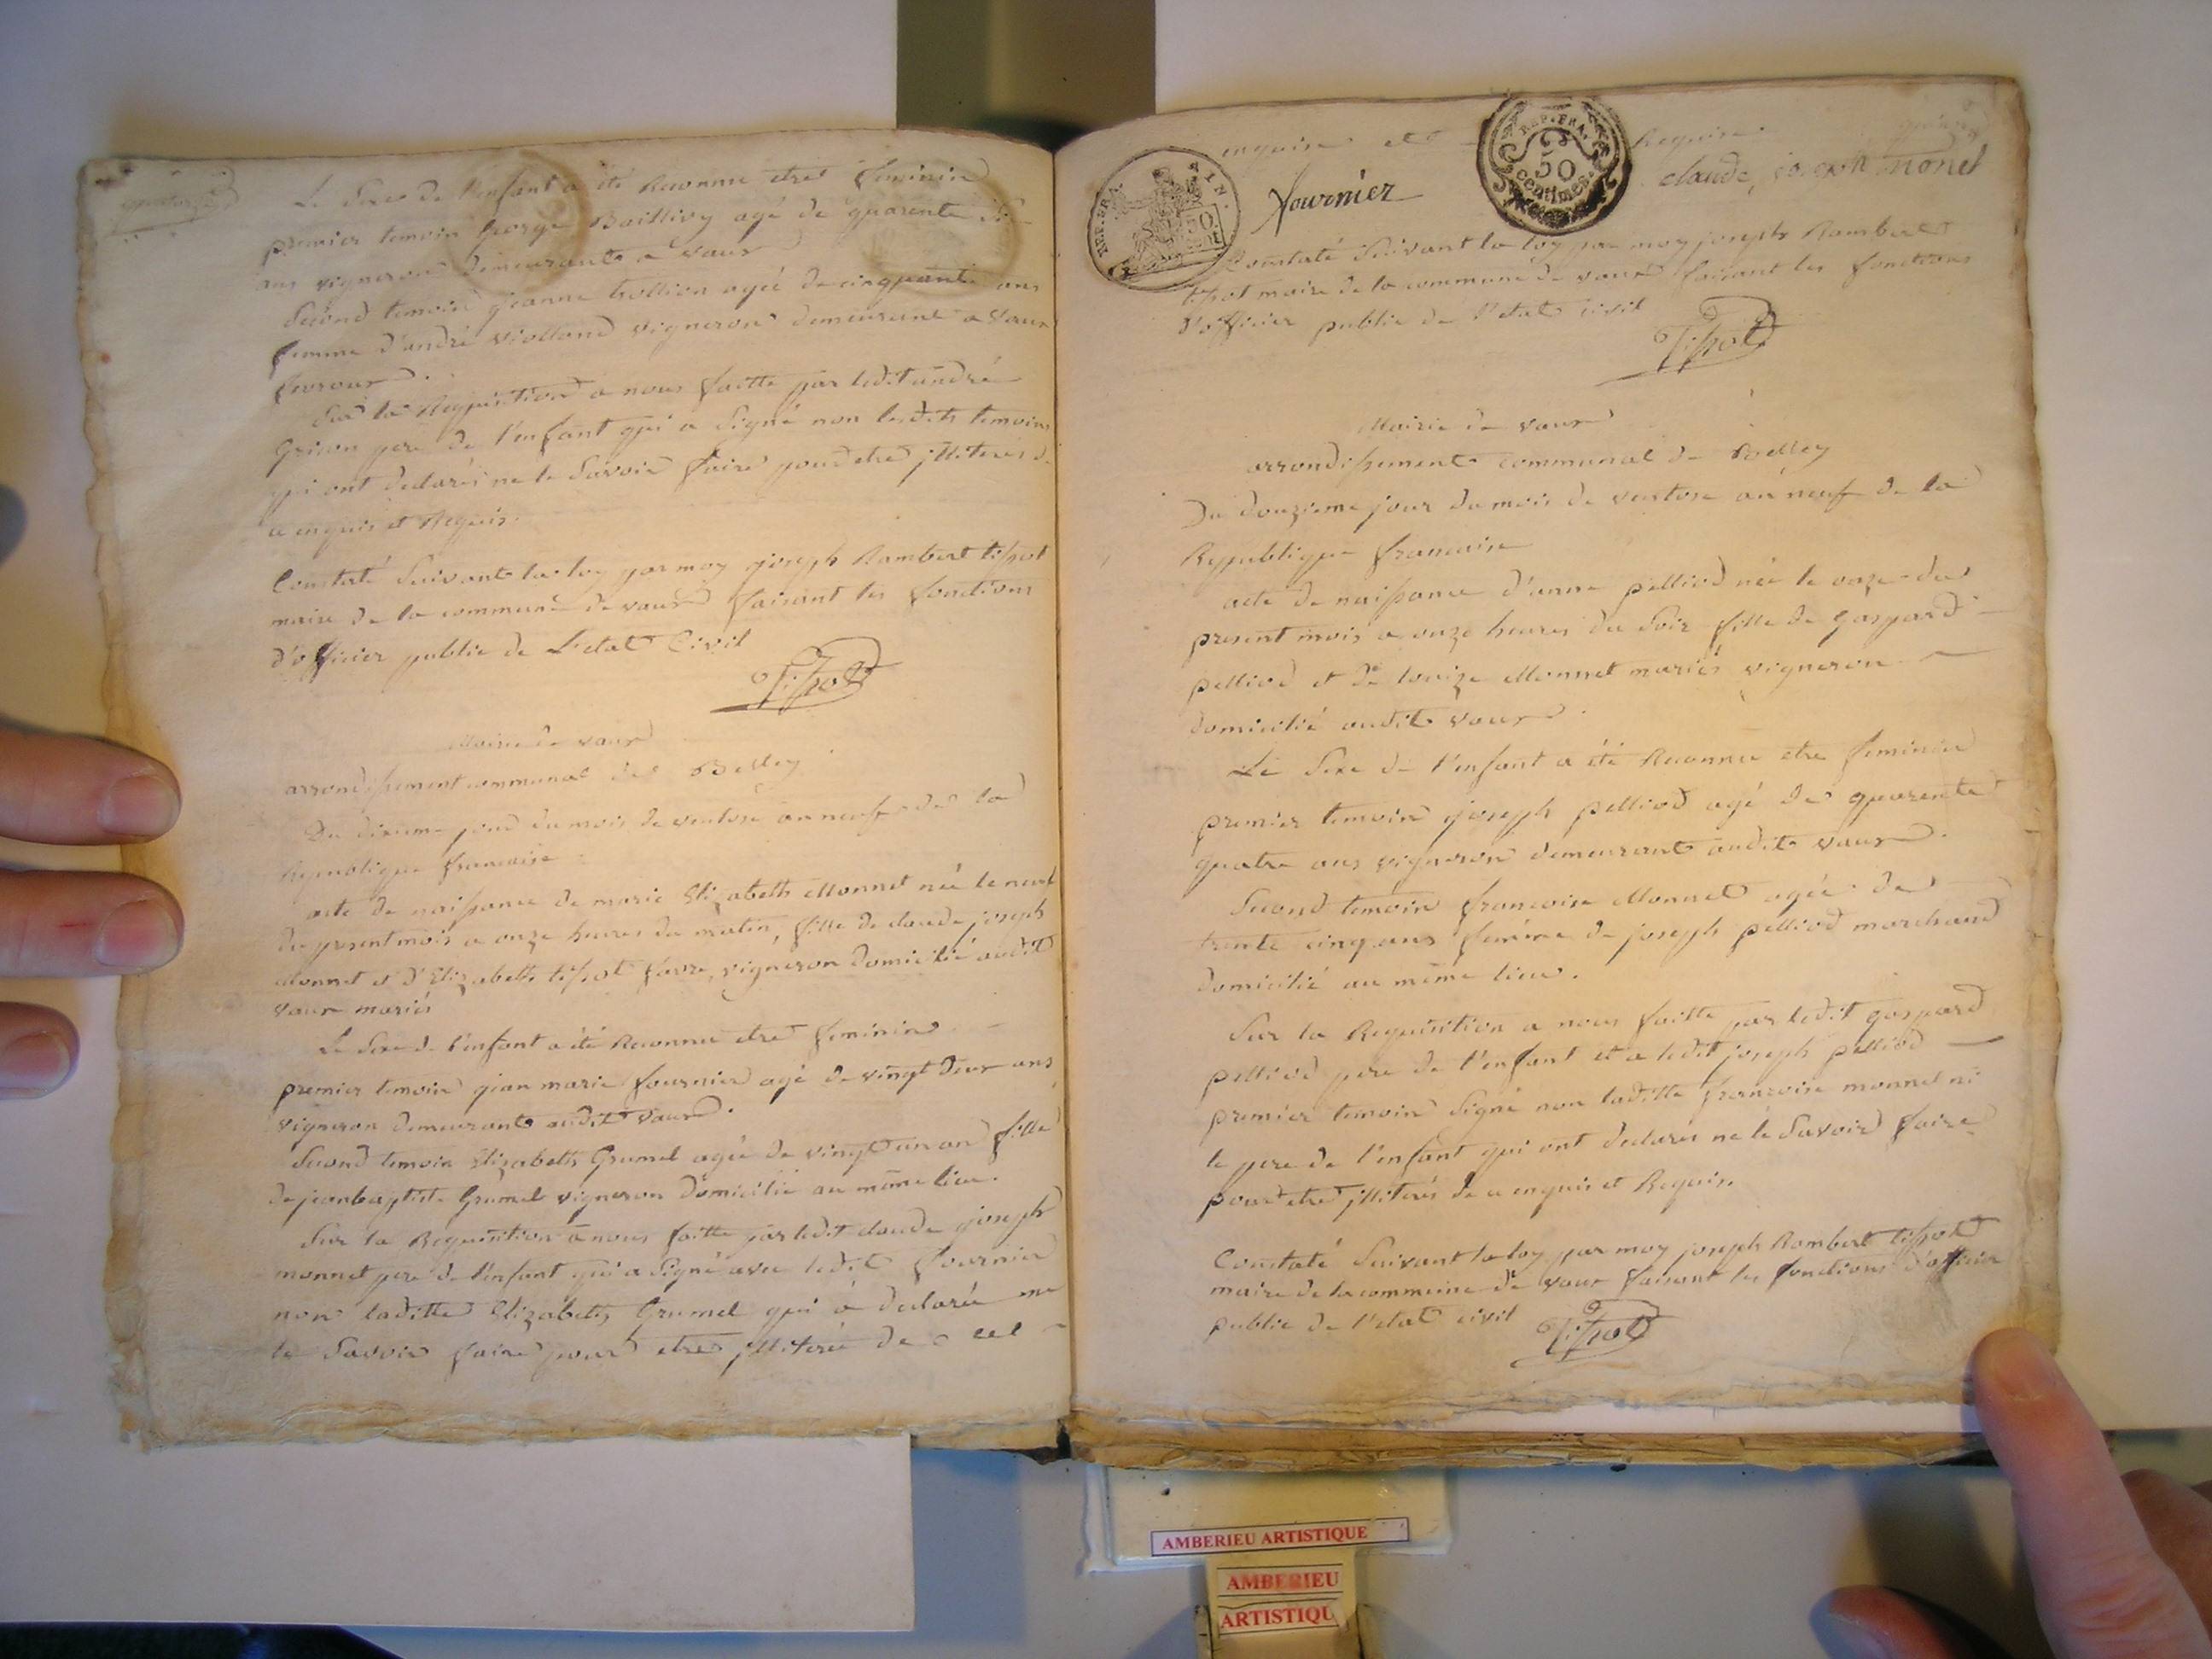 quatorze
Le Sexe de l'enfant a été Reconnu etre feminin
premier temoin George Baillivy agé de quarente six
ans vigneron demeurante a vaux
Second temoin jeanne trollion agée de cinquante ans
femme d'andré violland vigneron demeurant a vaux
fevroux.
Sur la Requisition a nous faitte par ledit andré
grison pere de l'enfant qui a Signé non lesdits temoins
qui ont declarés ne le Savoir faire pour etre jlliterés de
ce enquis et Requis.
Constaté Suivant la loy par moy joseph Rambert tissot
maire de la commune de vaux faisant les fonctions
d'officier public de L'etat Civil
Tissot
Mairie de vaux
arrondissement communal de Belley
Du dixieme jour du mois de ventose an neuf de la
Republique francaise
acte de naissance de marie Elizabeth Monnet née le neuf
du present mois a onze heures du matin, fille de claude joseph
Monnet et d'Elizabeth tissot favre, vigneron domicilié audit
vaux mariés
Le Sexe de l'enfant a été Reconnu etre feminin
premier temoin jean marie fournier agé de vingt deux ans
vigneron demeurant audit vaux.
Second temoin Elizabeth Grumel agée de vingt un an fille
de jeanbaptiste Grumel vigneron domicilié au même lieu.
Sur la Requisition a nous faitte par ledit claude joseph
monnet pere de l'enfant qui a Signé avec ledit fournier
non laditte Elizabeth Grumel qui a declarée ne
le Savoir faire pour etre jlliterée de cel
enquise et Requise.
REP. FRA.
AIN.
50
REP. FRA.
50
centimes
fournier
claude, joseph monet
Constaté Suivant la loy par moy joseph Rambert
tissot maire de la commune de vaux faisant les fonctions
d'officier public de l'etat civil
Tissot
Mairie de vaux
arrondissement communal de Belley
Du douzieme jour du mois de ventose an neuf de la
Republique francaise
acte de naissance d'anne pelliod née le onze du
present mois a onze heures du Soir fille de Gaspard
pelliod et de louize Monnet mariés vigneron
domicilié audit vaux.
Le Sexe de l'enfant a été Reconnu etre feminin
premier temoin joseph pelliod agé de quarente
quatre ans vigneron demeurant audit vaux.
Second temoin francoise Monnet agée de
trente cinq ans femme de joseph pelliod marchand
domicilié au même lieu.
Sur la Requisition a nous faitte par ledit gaspard
pelliod pere de l'enfant et a ledit joseph pelliod
premier temoin Signé non laditte francoise monnet ni
le pere de l'enfant qui ont declarés ne le Savoir faire
pour etre jlliterés de ce enquis et Requis.
Constaté Suivant la loy par moy joseph Rambert tissot
maire de la commune de vaux faisant les fonctions d'officier
public de l'etat civil
Tissot
AMBERIEU ARTISTIQUE
AMBERIEU
ARTISTIQU